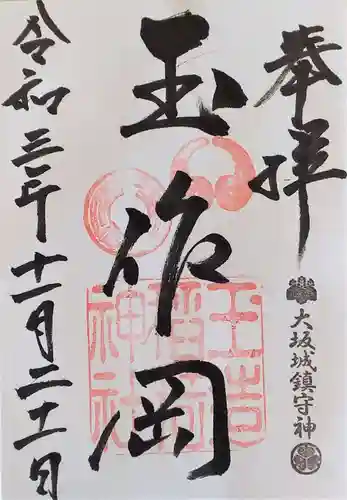 奉拝
大坂城鎮守神
玉作岡
玉造稲荷神社
令和三年十一月二十一日